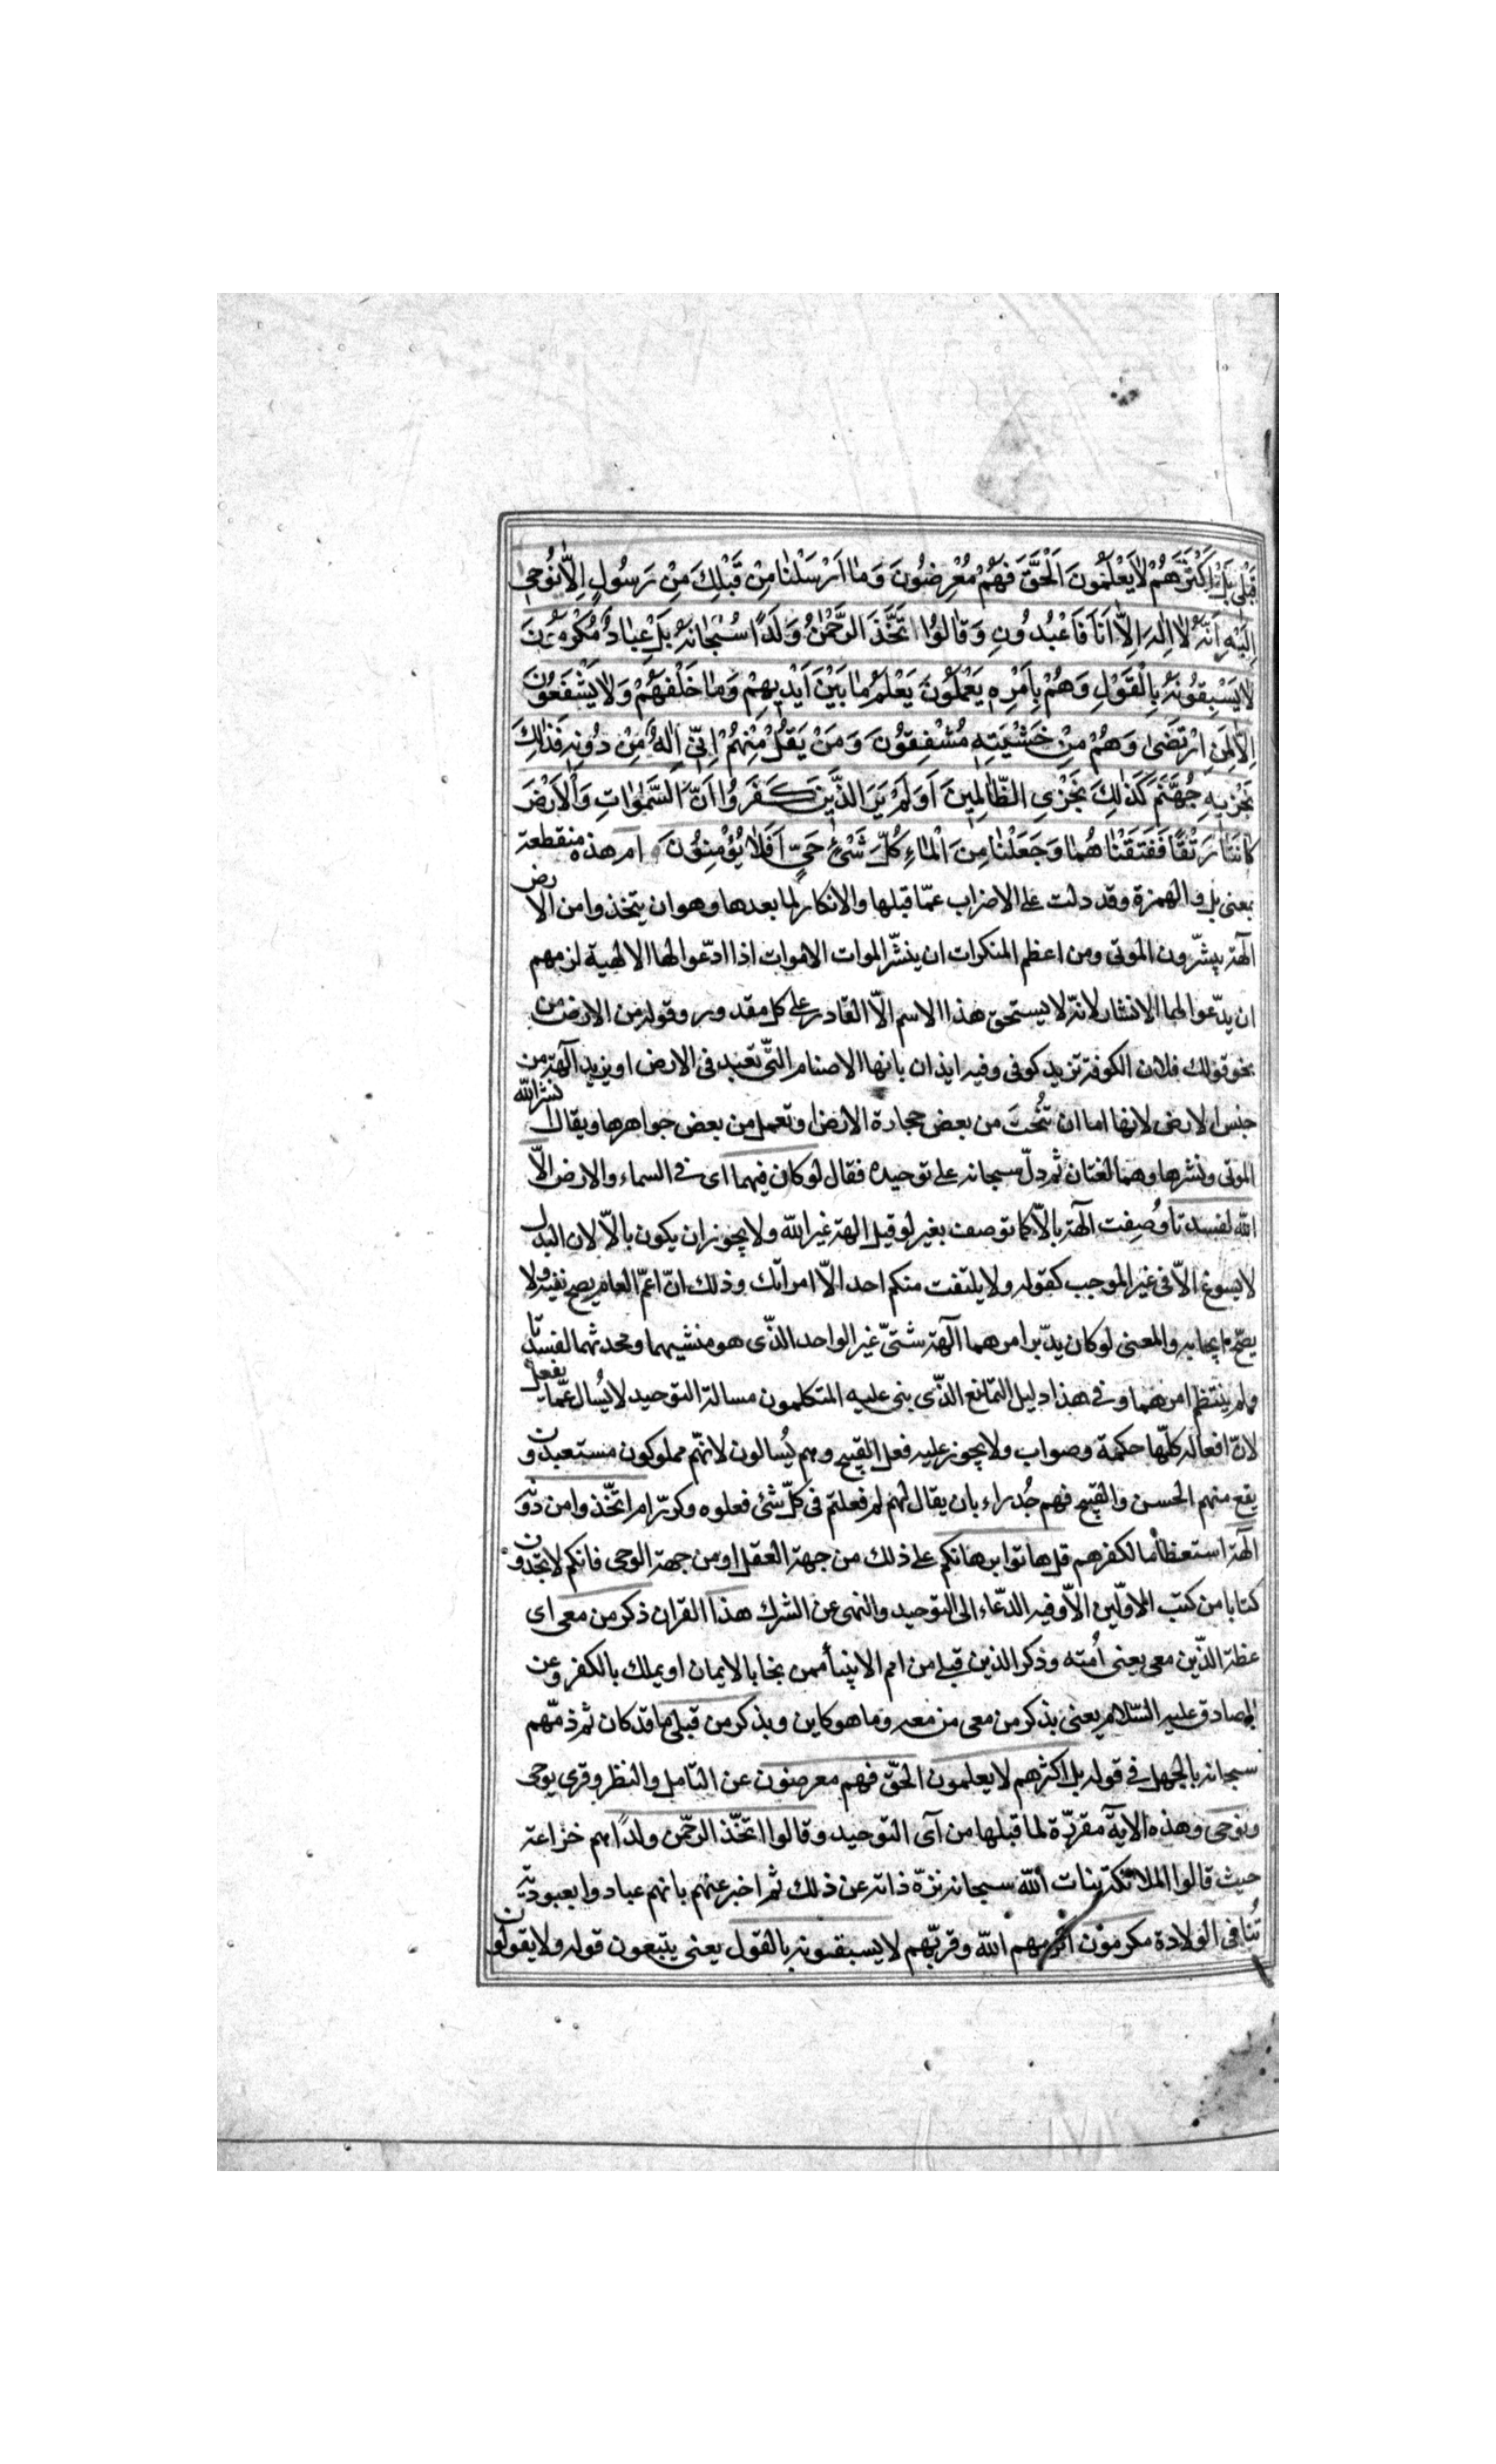 قَبْلِي بَلْ اَكْثَرُهُمْ لَا يَعْلَمُونَ اَلْحَقَّ فَهُمْ مُعْرِضُونَ وَمٰا اَرْسَلْنٰا مِنْ قَبْلِكَ مِنْ رَسُولٍ اِلّٰا نُوحِي
اِلَيْهِ اَنَّهُ لٰا اِلٰهَ اِلّٰا اَنَا فَاعْبُدُونِ وَقٰالُوا اتَّخَذَ الرَّحْمٰنُ وَلَدًا سُبْحٰانَهُ بَلْ عِبٰادٌ مُكْرَمُونَ
لٰا يَسْبِقُونَهُ بِالْقَوْلِ وَهُمْ بِاَمْرِهِ يَعْمَلُونَ يَعْلَمُ مٰا بَيْنَ اَيْدِيهِمْ وَمٰا خَلْفَهُمْ وَلٰا يَشْفَعُونَ
اِلّٰا لِمَنِ ارْتَضىٰ وَهُمْ مِنْ خَشْيَتِهِ مُشْفِقُونَ وَمَنْ يَقُلْ مِنْهُمْ اِنِّي اِلٰهٌ مِنْ دُونِهِ فَذٰلِكَ
نَجْزِيهِ جَهَنَّمَ كَذٰلِكَ نَجْزِي الظّٰالِمِينَ اَوَلَمْ يَرَ الَّذِينَ كَفَرُوا اَنَّ السَّمٰوٰاتِ وَالْاَرْضَ
كٰانَتٰا رَتْقًا فَفَتَقْنٰاهُمٰا وَجَعَلْنٰا مِنَ الْمٰاءِ كُلَّ شَيْءٍ حَيٍّ اَفَلٰا يُؤْمِنُونَ ام هذه منقطعة
بمعنى بل والهمزة وقد دلت على الاضراب عمّا قبلها والانكار لما بعدها وهو ان يتخذوا من الارض
الهة ينشرون الموتى ومن اعظم المنكرات ان ينشر الموات الاموات اذا ادّعوا لها الالهية لزمهم
ان يدّعوا لهما الانشار لانّه لا يستحق هذا الاسم الّا القادر على كل مقدور وقوله من الارض من
نحو قولك فلان الكوفة تزيد كوفى وفيه ايذان بانها الاصنام التّى تعبد فى الارض او يزيد آلهة من
جنس الارض لانها اما ان تُنحت من بعض حجارة الارض او تعمل من بعض جواهرها ويقال انشر الله
الموتى ونشرها وهما لغتان ثم دلّ سبحانه على توحيده فقال لو كان فيهما اى فى السماء والارض الّا
الله لفسدتا وُصِفت آلهة بالّا كما توصف بغير لو قيل الهة غير الله ولا يجوز ان يكون بالّا لان البدل
لا يسوغ الّا فى غير الموجب كقوله ولا يلتفت منكم احد الّا امراتك وذلك انّ اعمّ العام يصح نفيه ولا
يصحّ ايجابه والمعنى لو كان يدبّر امرهما آلهة شتىّ غير الواحد الذّى هو منشيهما ومحدثهما لفسدتا
ولم ينتظم امرهما وفى هذا دليل التمانع الذّى بنى عليه المتكلمون مسالة التوحيد لا يُسال عمّا يفعل
لانّ افعاله كلّها حكمة وصواب ولا يجوز عليه فعل القبيح وهم يُسالون لانهّم مملوكون مستعبدون و
يقع منهم الحسن والقبيح فهم جُدراء بان يقال لهم لم فعلتم فى كلّ شئ فعلوه وكرّر ام اتّخذوا من دونه
الهة استعظاما لكفرهم قل هاتوا برهانكم على ذلك من جهة العقل او من جهة الوحى فانكم لا تجدون
كتابا من كتب الاوّلين الّا وفيه الدّعاء الى التوحيد والنهى عن الشرك هذا القران ذكر من معى اى
عظة الذّين معى يعنى اُمته وذكر الذين قبلى من امم الانبياء ممن نجا بالايمان او يملك بالكفر وعن
الصادق عليه السّلام يعنى بذكر من معى من معه وما هو كاين وبذكر من قبلى ما قد كان ثم ذمّهم
سبحانه بالجهل فى قوله بل اكثرهم لا يعلمون الحقّ فهم معرضون عن التامل والنظر وقرى يوحى
ونوحى وهذه الاية مقررّة لما قبلها من آى التوحيد وقالوا اتخّذ الرحّمن ولدًا هم خزاعة
حيث قالوا الملائكة بنات الله سبحانه نزّه ذاته عن ذلك ثم اخبر عنهم بانهم عباد والعبوديّة
تُنافى الولادة مكرمون اكرمهم الله وقربّهم لا يسبقونه بالقول يعنى يتبعون قوله ولا يقولون